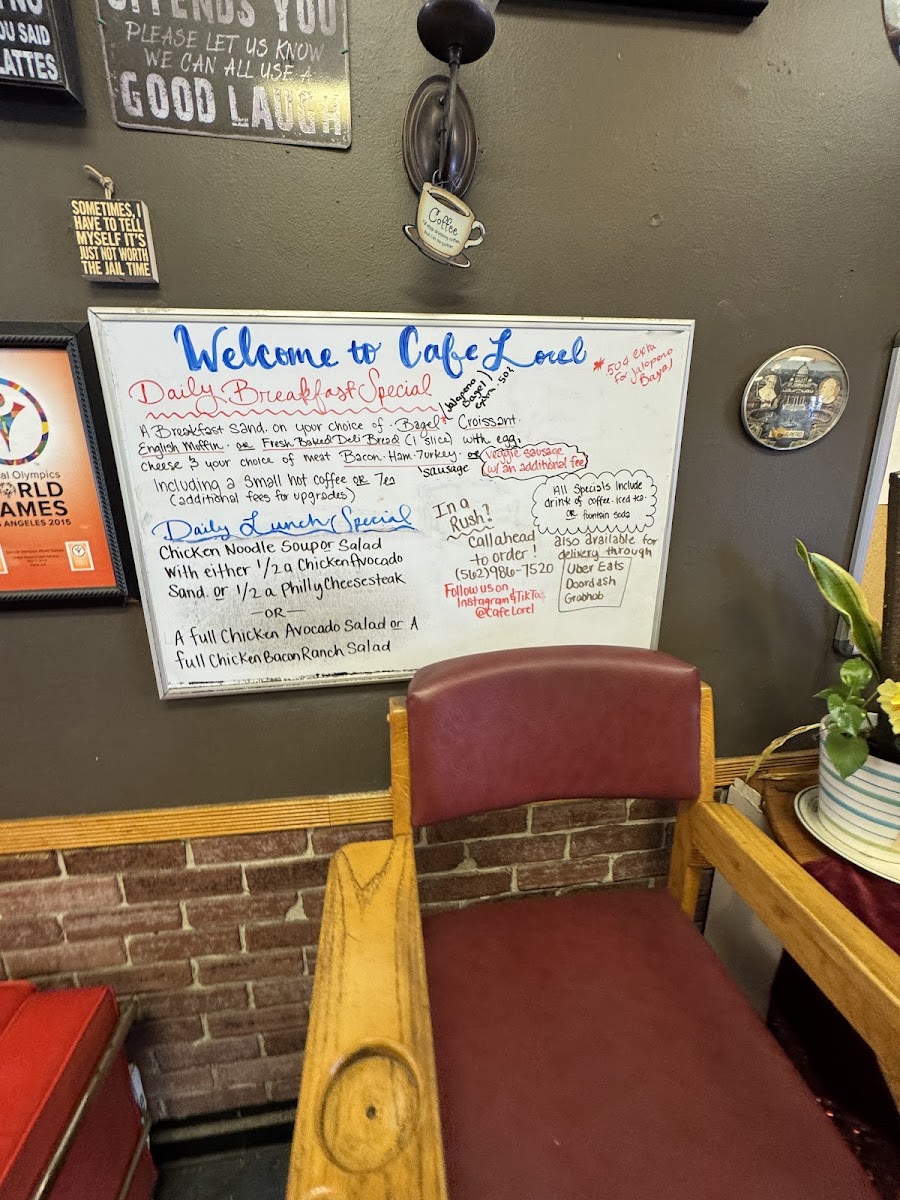 YOU SAID
LATTES
OFFENDS YOU
PLEASE LET US KNOW
WE CAN ALL USE A
GOOD LAUGH
SOMETIMES, I
HAVE TO TELL
MYSELF IT'S
JUST NOT WORTH
THE JAIL TIME
Coffee
Welcome to Cafe Lorel
*.50¢ extra
for Jalapeno
Bagel
Daily Breakfast Special
(Jalapeno
Bagel)
extra .50¢
A Breakfast Sand. on your choice of . Bagel * Croissant .
English Muffin . or Fresh Baked Deli Bread (1 slice) with egg,
cheese & your choice of meat Bacon . Ham . Turkey . or
sausage
Veggie sausage
w/ an additional fee
Including a Small hot coffee or Tea
(additional fees for upgrades)
All Specials Include
drink of coffee . iced tea .
or fountain soda
Daily Lunch Special
Chicken Noodle Soup or Salad
With either 1/2 a Chicken Avocado
Sand. or 1/2 a Philly Cheesesteak
— OR —
A full Chicken Avocado Salad or A
full Chicken Bacon Ranch Salad
In a
Rush?
Call ahead
to order!
(562)986-7520
Follow us on
Instagram & TikTok
@CafeLorel
also available for
delivery through
Uber Eats
Doordash
Grabhub
Special Olympics
WORLD
GAMES
LOS ANGELES 2015